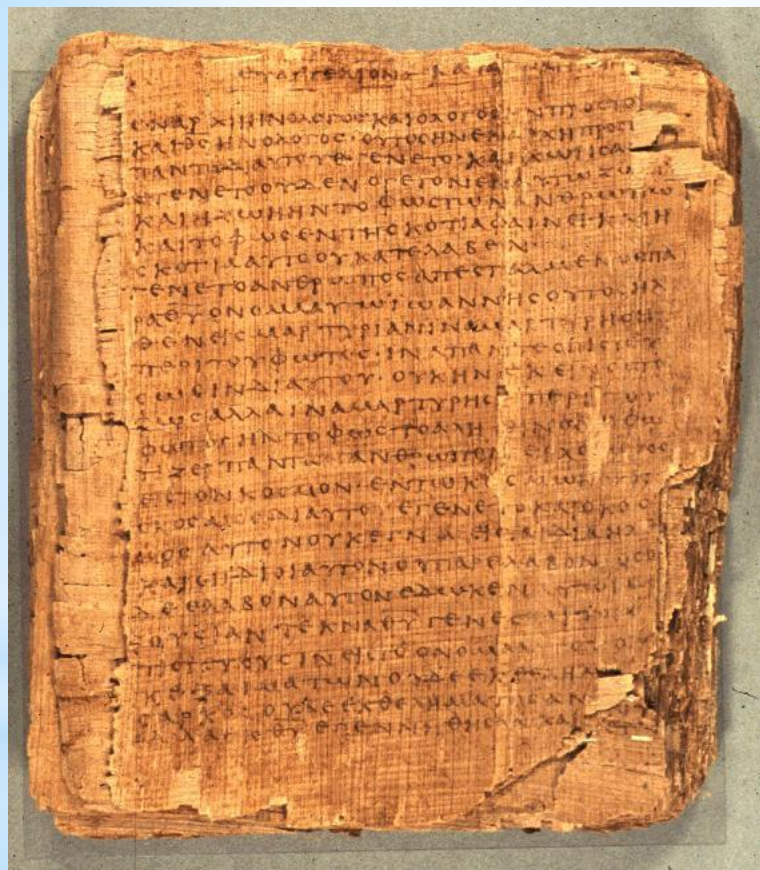 ΕΥΑΓΓΕΛΙΟΝ ΚΑΤΑ
ΕΝ ΑΡΧΗ ΗΝ Ο ΛΟΓΟΣ ΚΑΙ Ο ΛΟΓΟΣ ΗΝ ΠΡΟΣ ΤΟ
ΚΑΙ ΘΣ ΗΝ Ο ΛΟΓΟΣ · ΟΥΤΟΣ ΗΝ ΕΝ ΑΡΧΗ ΠΡΟΣ
ΠΑΝΤΑ ΔΙ ΑΥΤΟΥ ΕΓΕΝΕΤΟ · ΚΑΙ ΧΩΡΙΣ Α
ΕΓΕΝΕΤΟ ΟΥΔΕΝ Ο ΓΕΓΟΝΕΝ ΕΝ ΑΥΤΩ ΖΩ
ΚΑΙ Η ΖΩΗ ΗΝ ΤΟ ΦΩΣ ΤΩΝ ΑΝΘΡΩΠΩ
ΚΑΙ ΤΟ ΦΩΣ ΕΝ ΤΗ ΣΚΟΤΙΑ ΦΑΙΝΕΙ · ΚΑΙ Η
ΣΚΟΤΙΑ ΑΥΤΟ ΟΥ ΚΑΤΕΛΑΒΕΝ ·
ΓΕΝΕΤΟ ΑΝΘΡΩΠΟΣ ΑΠΕΣΤΑΛΜΕΝΟΣ ΠΑ
ΡΑ ΘΥ ΟΝΟΜΑ ΑΥΤΩ ΙΩΑΝΝΗΣ ΟΥΤΟΣ ΗΛ
ΘΕΝ ΕΙΣ ΜΑΡΤΥΡΙΑΝ ΙΝΑ ΜΑΡΤΥΡΗΣΗ
ΠΕΡΙ ΤΟΥ ΦΩΤΟΣ · ΙΝΑ ΠΑΝΤΕΣ ΠΙΣΤΕΥ
ΣΩΣΙΝ ΔΙ ΑΥΤΟΥ · ΟΥΚ ΗΝ ΕΚΕΙΝΟΣ ΤΟ
ΦΩΣ ΑΛΛΑ ΙΝΑ ΜΑΡΤΥΡΗΣΗ ΠΕΡΙ ΤΟΥ
ΦΩΤΟΣ ΗΝ ΤΟ ΦΩΣ ΤΟ ΑΛΗΘΙΝΟΝ Ο ΦΩ
ΤΙΖΕΙ ΠΑΝΤΑ ΑΝΘΡΩΠΟΝ ΕΡΧΟΜΕΝΟΝ
ΕΙΣ ΤΟΝ ΚΟΣΜΟΝ · ΕΝ ΤΩ ΚΟΣΜΩ ΗΝ
ΚΟΣΜΟΣ ΔΙ ΑΥΤΟΥ ΕΓΕΝΕΤΟ ΚΑΙ Ο ΚΟΣ
ΜΟΣ ΑΥΤΟΝ ΟΥΚ ΕΓΝΩ ΕΙΣ ΤΑ ΙΔΙΑ ΗΛΘΕ
ΚΑΙ ΟΙ ΙΔΙΟΙ ΑΥΤΟΝ ΟΥ ΠΑΡΕΛΑΒΟΝ · ΟΣΟΙ
ΔΕ ΕΛΑΒΟΝ ΑΥΤΟΝ ΕΔΩΚΕΝ ΑΥΤΟΙΣ
ΟΥΣΙΑΝ ΤΕΚΝΑ ΘΥ ΓΕΝΕΣΘΑΙ ΤΟΙΣ
ΠΙΣΤΕΥΟΥΣΙΝ ΕΙΣ ΤΟ ΟΝΟΜΑ
Κ ΕΞ ΑΙΜΑΤΩΝ ΟΥΔΕ ΕΚ ΘΕΛΗΜΑ
ΣΑΡΚΟΣ ΟΥΔΕ ΕΚ ΘΕΛΗΜΑΤΟΣ ΑΝ
ΑΛΛΑ ΕΚ ΘΥ ΕΓΕΝΝΗΘΗΣΑΝ ΚΑΙ